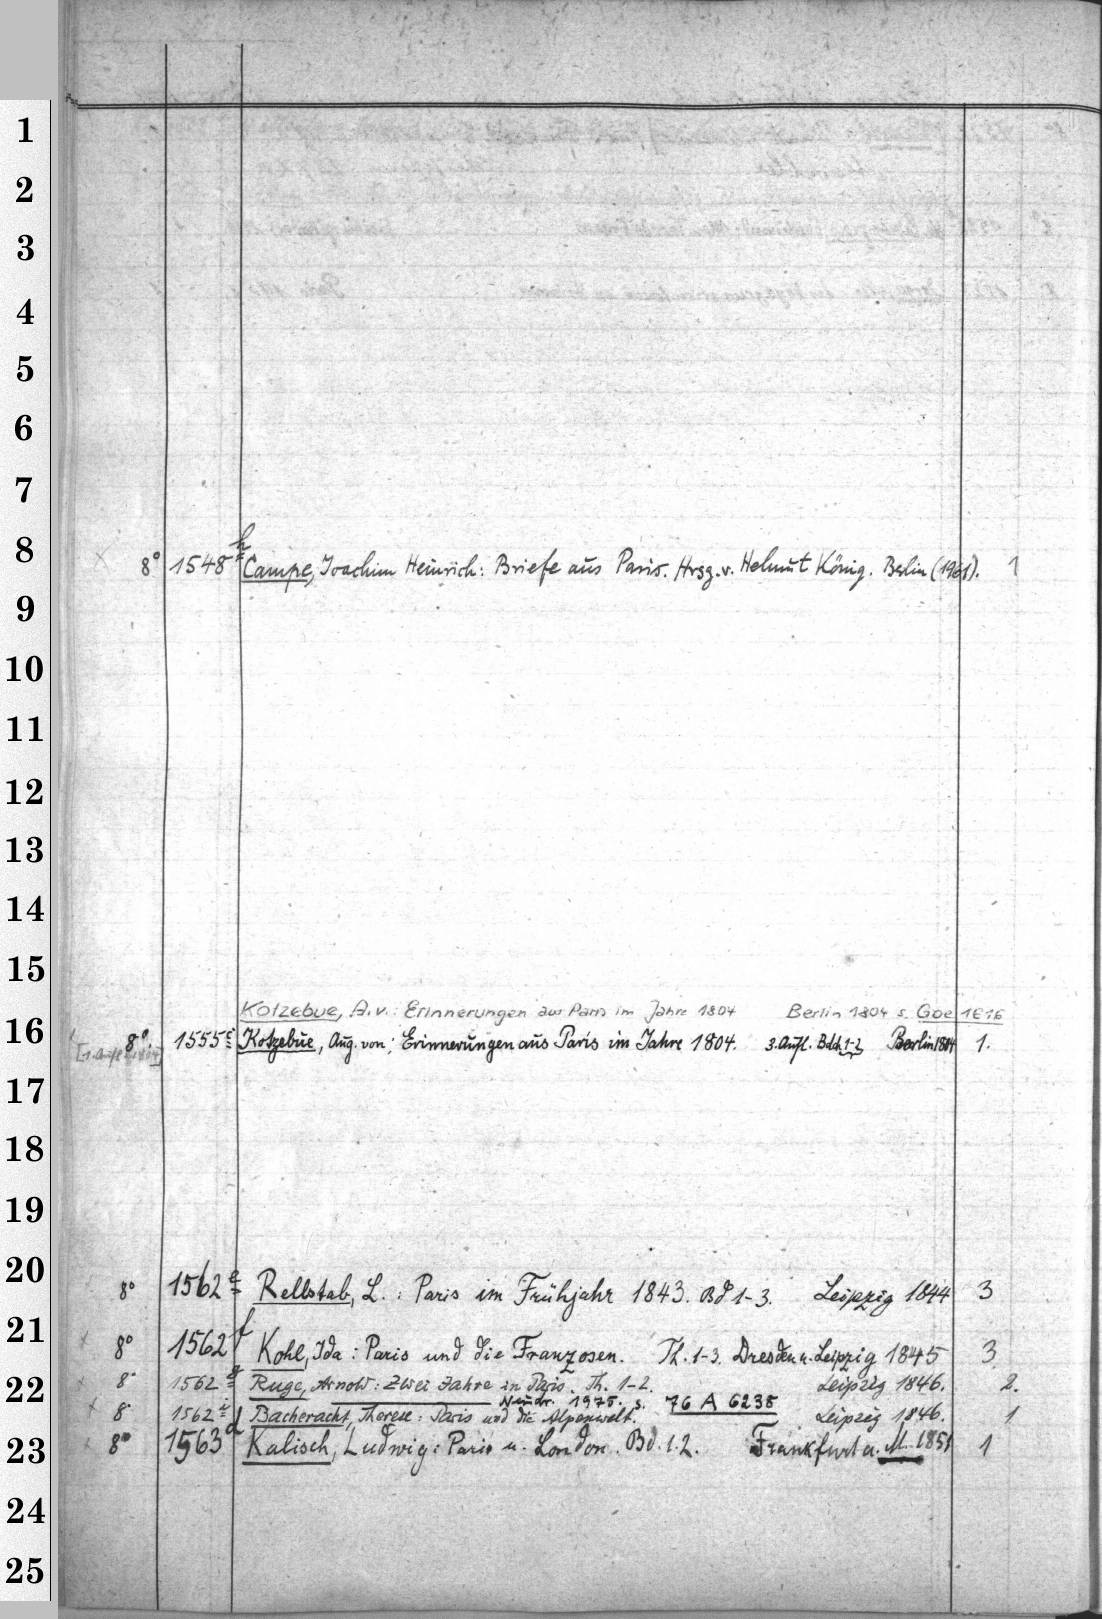 1
2
3
4
5
6
7
8
8° 1548 h Campe, Joachim Heinrich: Briefe aus Paris. Hrsg. v. Helmut König. Berlin (1961). 1
9
10
11
12
13
14
15
Kotzebue, A. v.: Erinnerungen aus Paris im Jahre 1804 Berlin 1804 s. Goe 1616
16
8°. 1555 Kotzebue, Aug. von: Erinnerungen aus Paris im Jahre 1804. 3. Aufl. Bdch 1-2 Berlin 1804 1.
[1. Aufl. 1804]
17
18
19
20
8° 1562 e Rellstab, L.: Paris im Frühjahr 1843. Bd 1-3. Leipzig 1844 3
21
8° 1562 f Kohl, Ida: Paris und die Franzosen. Th. 1-3. Dresden u. Leipzig 1845 3
22
8° 1562 g Ruge, Arnold: Zwei Jahre in Paris. Th. 1-2. Leipzig 1846. 2.
Neudr. 1975. s. 76 A 6235
8° 1562 Bacheracht, Therese: Paris und die Alpenwelt. Leipzig 1846. 1
23
8° 1563 d Kalisch, Ludwig: Paris u. London. Bd. 1.2. Frankfurt a. M. 1851 1
24
25